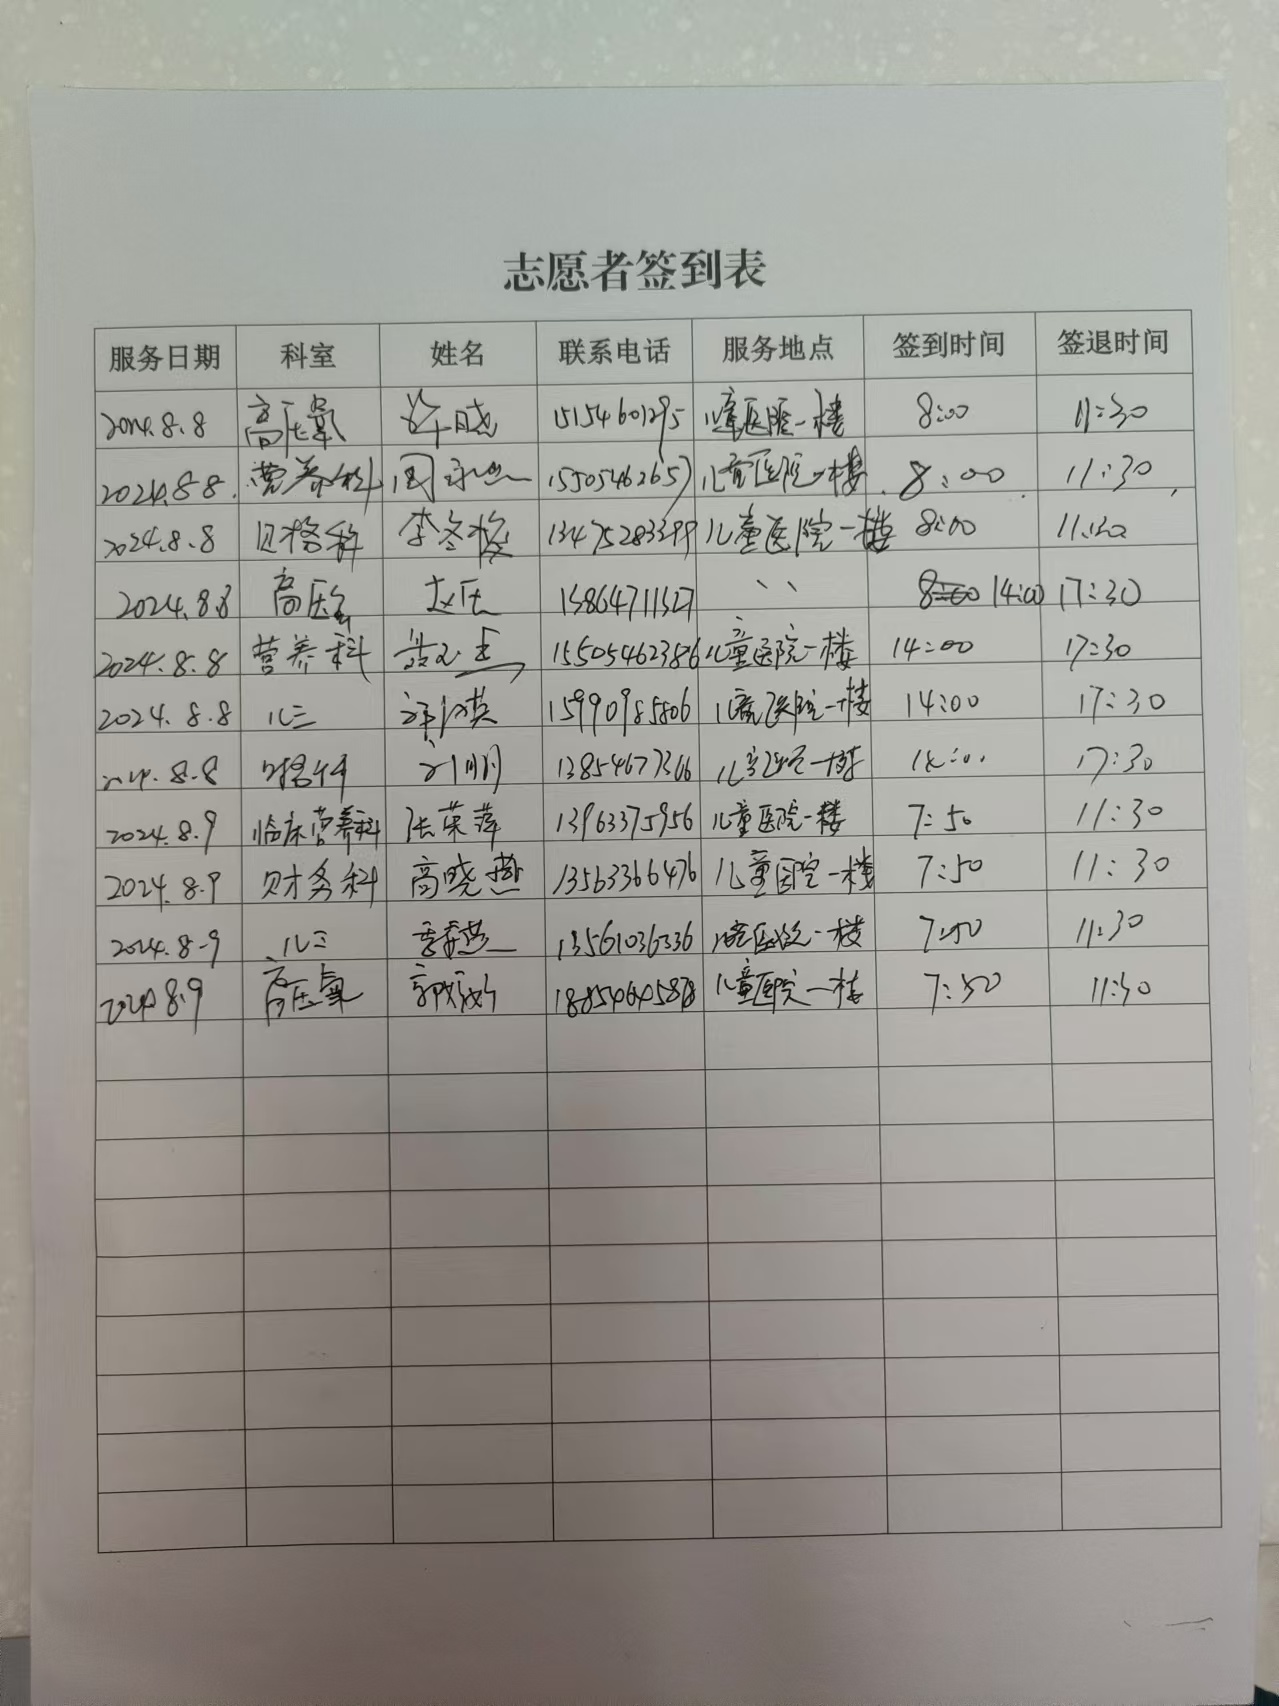 志愿者签到表
服务日期 科室 姓名 联系电话 服务地点 签到时间 签退时间
2024.8.8 高压氧 许晓 15154601295 儿童医院一楼 8:00 11:30
2024.8.8 营养科 周 15505462657 儿童医院一楼 8:00 11:30
2024.8.8 李冬梅 13475283399 儿童医院一楼 8:00 11:30
2024.8.8 高压氧 赵压 13864711327 〃 14:00 17:30
2024.8.8 营养科 15505462386 儿童医院一楼 14:00 17:30
2024.8.8 儿三 15990985806 儿童医院一楼 14:00 17:30
2024.8.8 13854677366 儿童医院一楼 14:00 17:30
2024.8.9 临床营养科 张荣萍 13963375956 儿童医院一楼 7:50 11:30
2024.8.9 财务科 高晓燕 13563366476 儿童医院一楼 7:50 11:30
2024.8.9 儿三 13561036336 儿童医院一楼 7:50 11:30
2024.8.9 高压氧 儿童医院一楼 7:50 11:30